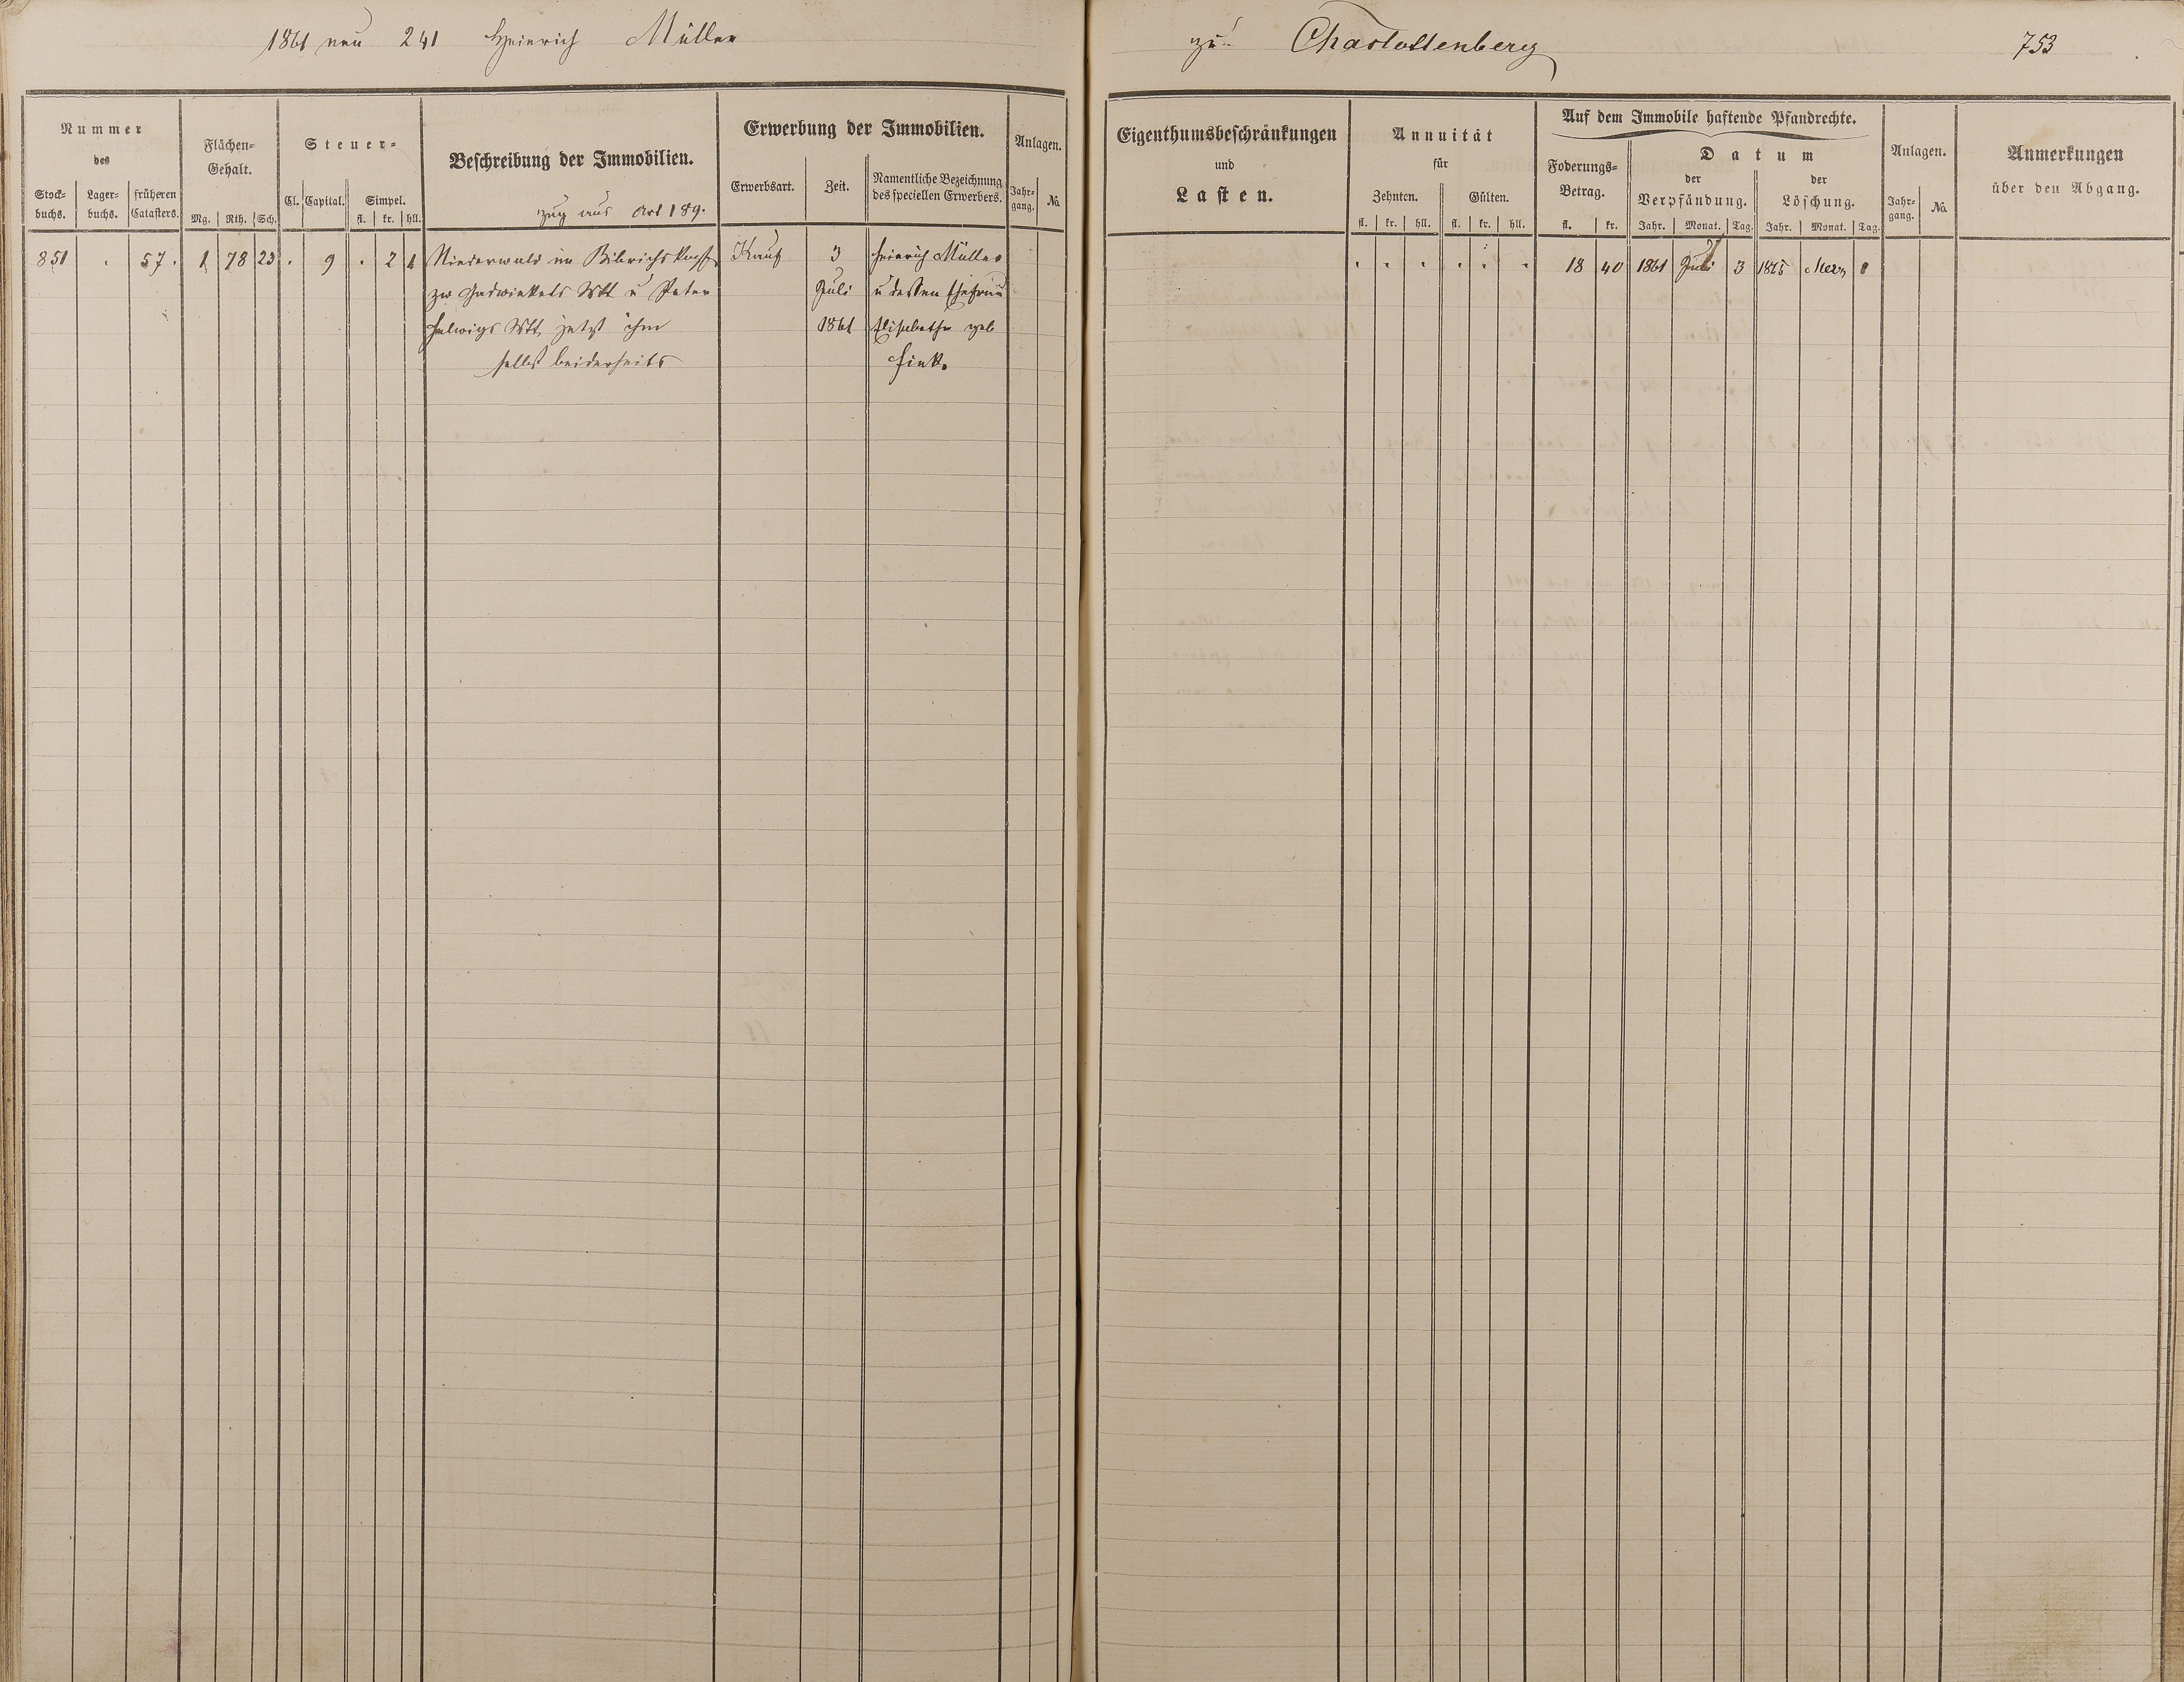 1861 neu 241 Heinrich Müller
zu Charlottenberg 753
Nummer
des
Stock-
buchs.
Lager-
buchs.
früheren
Catasters.
Flächen-
Gehalt.
Mg. Rth. Sch.
Steuer-
Cl. Capital. Simpel.
fl. kr. hll.
Beschreibung der Immobilien.
Zug aus Art 189.
Erwerbung der Immobilien.
Erwerbsart. Zeit.
Namentliche Bezeichnung
des speciellen Erwerbers.
Anlagen.
Jahr-
gang.
No.
Eigenthumsbeschränkungen
und
Lasten.
Annuität
für
Zehnten. Gülten.
fl. kr. hll. fl. kr. hll.
Auf dem Immobile haftende Pfandrechte.
Foderungs-
Betrag.
fl. kr.
Datum
der
Verpfändung.
Jahr. Monat. Tag.
der
Löschung.
Jahr. Monat. Tag.
Anlagen.
Jahr-
gang.
No.
Anmerkungen
über den Abgang.
851 . 57. 1 78 23 . 9 . 2 1 Niederwald im Kauf 3 Heinrich Müller
zw Wtt u Peter Juli u dessen Ehefrau
Helwigs Wtt jetzt ihm 1861 Elisabethe geb
selbst beiderseits Fink.
. . . . . . 18 40 1861 Juli 3 1875 Merz 8